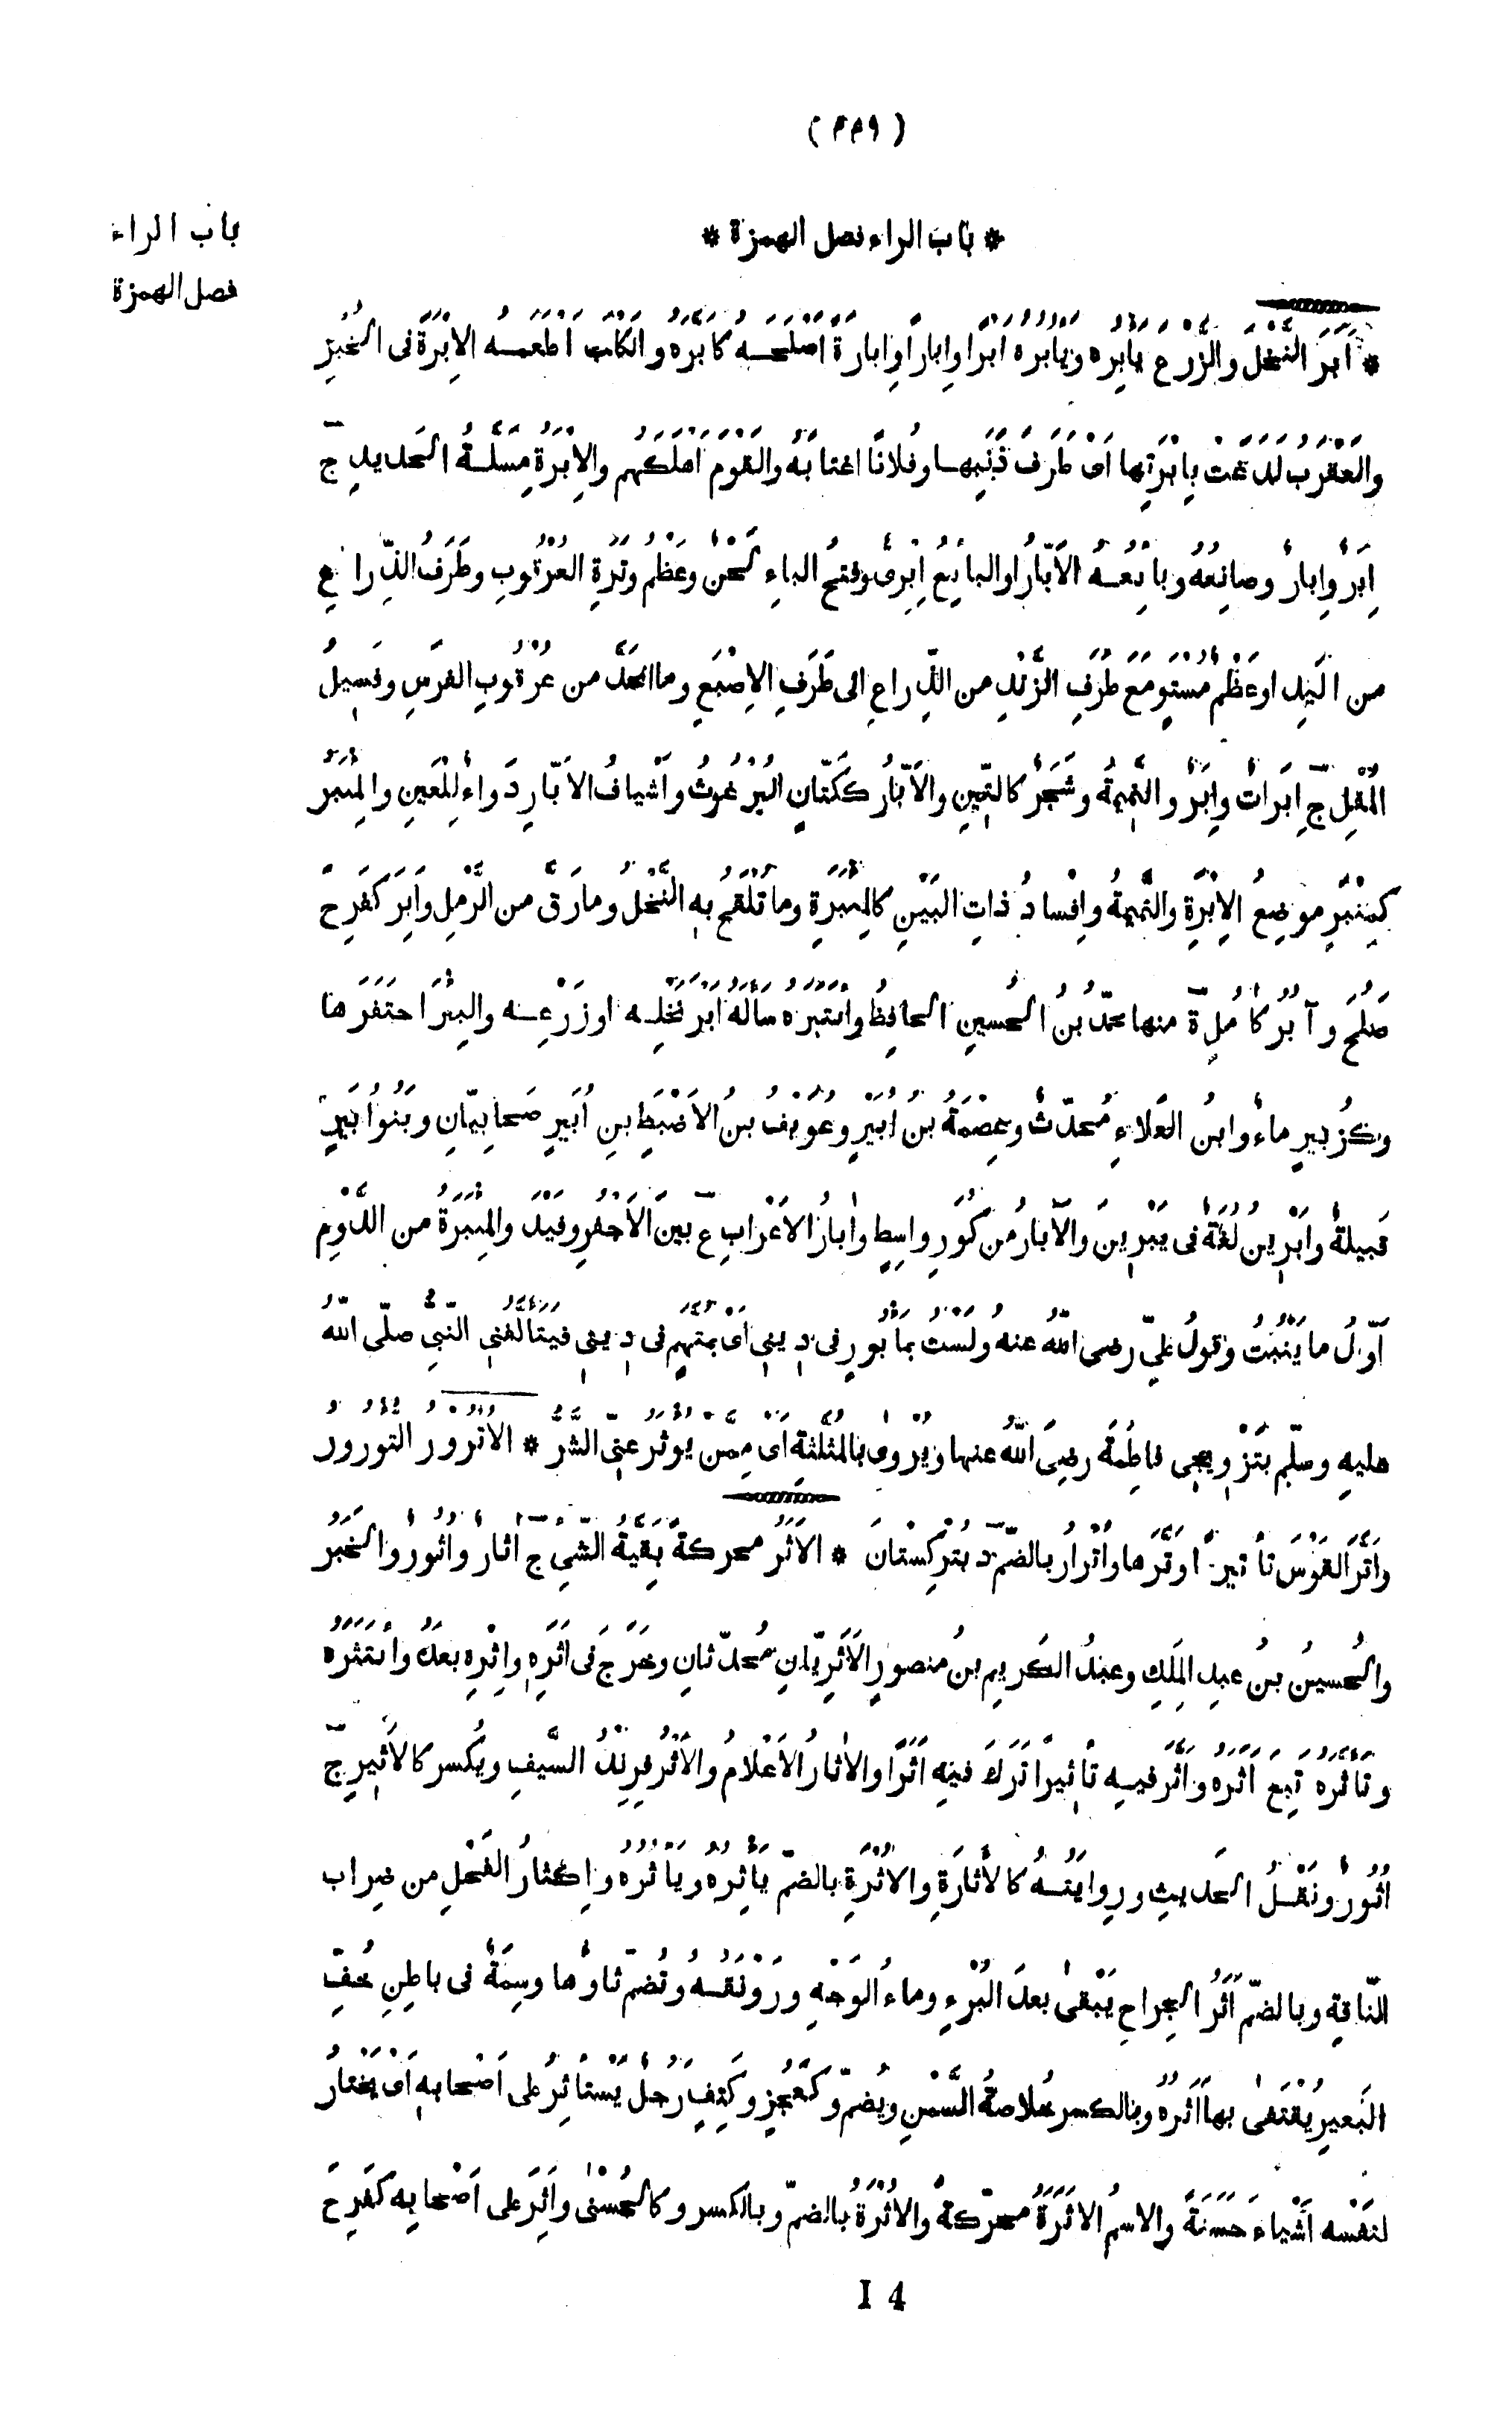 ( ٤٤٩ )
* باب الراء فصل الهمزة *
باب الراء
فصل الهمزة
* اَبَرَ النَّخْلَ والزَّرْعَ يَأْبِرُه ويَأْبُرُه اَبْرًا واِبارًا واِبارَةً اَصْلَحَه كَاَبَّرَه والكَلْبَ اَطْعَمَه الاِبْرَةَ فى الخُبْزِ
والعَقْرَبُ لَدَغَتْ بِاِبْرَتِها اَىْ طَرَفِ ذَنَبِها وفُلانًا اغتابَهُ والقَوْمَ اَهْلَكَهُم والاِبْرَةُ مِسَلَّةُ الحَديدِ ج
اِبَرٌ واِبارٌ وصانِعُهُ وبائِعُهُ الاَبّارُ او البائِعُ اِبْرِىٌّ وفتحُ الباءِ لَحْنٌ وعَظْمُ وَتَرَةِ العُرْقُوبِ وطَرَفُ الذِّراعِ
من اليَدِ او عَظْمٌ مُسْتَوٍ مَعَ طَرَفِ الزَّنْدِ من الذِّراعِ الى طَرَفِ الاِصْبَعِ وما انْحَدَّ من عُرْقُوبِ الفَرَسِ وفَسِيلُ
المُقْلِ ج اِبَرَاتٌ واِبَرٌ والنَّمِيمَةُ وشَجَرٌ كالتِّينِ والاَبّارُ كَكَتّانٍ البُرْغُوثُ واَشْيافُ الاَبّارِ دَواءٌ لِلْعَينِ والمِئْبَرُ
كمِنْبَرٍ موضِعُ الاِبْرَةِ والنَّمِيمَةُ واِفْسادُ ذاتِ البَيْنِ كالمِئْبَرَةِ وما تُلْقَحُ بِهِ النَّخْلُ وما رَقَّ من الرَّمْلِ واَبِرَ كَفَرِحَ
صَلُحَ وآبُرُ كآمُلَ ة منها محمّدُ بنُ الحُسينِ الحافِظُ وائْتَبَرَه سالَهُ اَبْرَ نَخْلِه او زَرْعِه والبِئْرَ احتَفَرَها
وكزُبَيرٍ ماءٌ وابنُ العَلاءِ مُحدّثٌ وعِصْمَةُ بنُ اُبَيْرٍ وعُوَيْفُ بنُ الاَضْبَطِ بنِ اُبَيرٍ صَحابِيّانِ وبَنُو اُبَيرٍ
قَبيلةٌ واَبْرِينُ لُغَةٌ فى يَبْرِينَ والآبارُ من كُوَرِ واسِطٍ وآبارُ الاَعْرابِ ع بَينَ الاَجْفُرِ وفَيْدَ والمِئْبَرَةُ من الدَّوْمِ
اَوّلُ ما يَنْبُتُ وقولُ عليٍّ رضى اللّٰهُ عنهُ ولَسْتُ بمَأْبُورٍ فى دِينِى اَىْ بمُتَّهَمٍ فى دِينِى فيَتاَلَّفَنِى النّبىُّ صلّى اللّٰهُ
عليهِ وسلّم بتَزْوِيجِى فاطِمَةَ رضِىَ اللّٰهُ عنها ويُرْوى بالمُثَلَّثةِ اَىْ مِمّن يُؤْثَرُ عنّى الشَّرُّ * الاُتْرُورُ التُورُورُ
واَتَّرَ القَوْسَ تاْتيرًا وَتَّرَها واُتْرارُ بالضمّ د بتُرْكِسْتانَ * الاَثَرُ محركةً بَقِيَّةُ الشّىْءِ ج آثارٌ واُثُورٌ والخَبَرُ
والحُسينُ بنُ عبدِ المَلِكِ وعبدُ الكَريمِ بنُ منصورٍ الاَثَرِيّانِ مُحدّثانِ وخَرَجَ فى اَثَرِهِ واِثْرِهِ بعدَهُ وائْتَثَرَه
وتَاَثَّرَه تَبِعَ اَثَرَه واَثَّرَ فيه تَأثِيرًا تَرَكَ فيهِ اَثَرًا والآثارُ الاَعْلامُ والاَثْرُ فِرِنْدُ السَّيفِ ويُكسر كالاَثِيرِ ج
اُثُورٌ ونَقْلُ الحَديثِ ورِوايَتُهُ كالاَثارَةِ والاُثْرَةِ بالضمّ يَأْثِرُهُ ويَأْثُرُهُ واِكثارُ الفَحْلِ من ضِرابِ
النّاقةِ وبالضمّ اَثَرُ الجِراحِ يَبْقى بعدَ البُرْءِ وماءُ الوَجْهِ ورَوْنَقُهُ وتُضَمّ ثاؤُها وسِمَةٌ فى باطِنِ خُفِّ
البَعيرِ يُقْتَفى بها اَثَرُه وبالكسرِ خُلاصَةُ السَّمْنِ ويُضَمّ وكَعَجُزٍ وكَتِفٍ رَجُلٌ يَسْتَأْثِرُ على اَصْحابِهِ اَىْ يَخْتارُ
لنَفْسِه اَشْياءَ حَسَنَةً والاسمُ الاَثَرَةُ محرّكةً والاُثْرَةُ بالضمّ وبالكسر وكالحُسْنى واَثِرَ على اَصْحابِه كَفَرِحَ
I 4